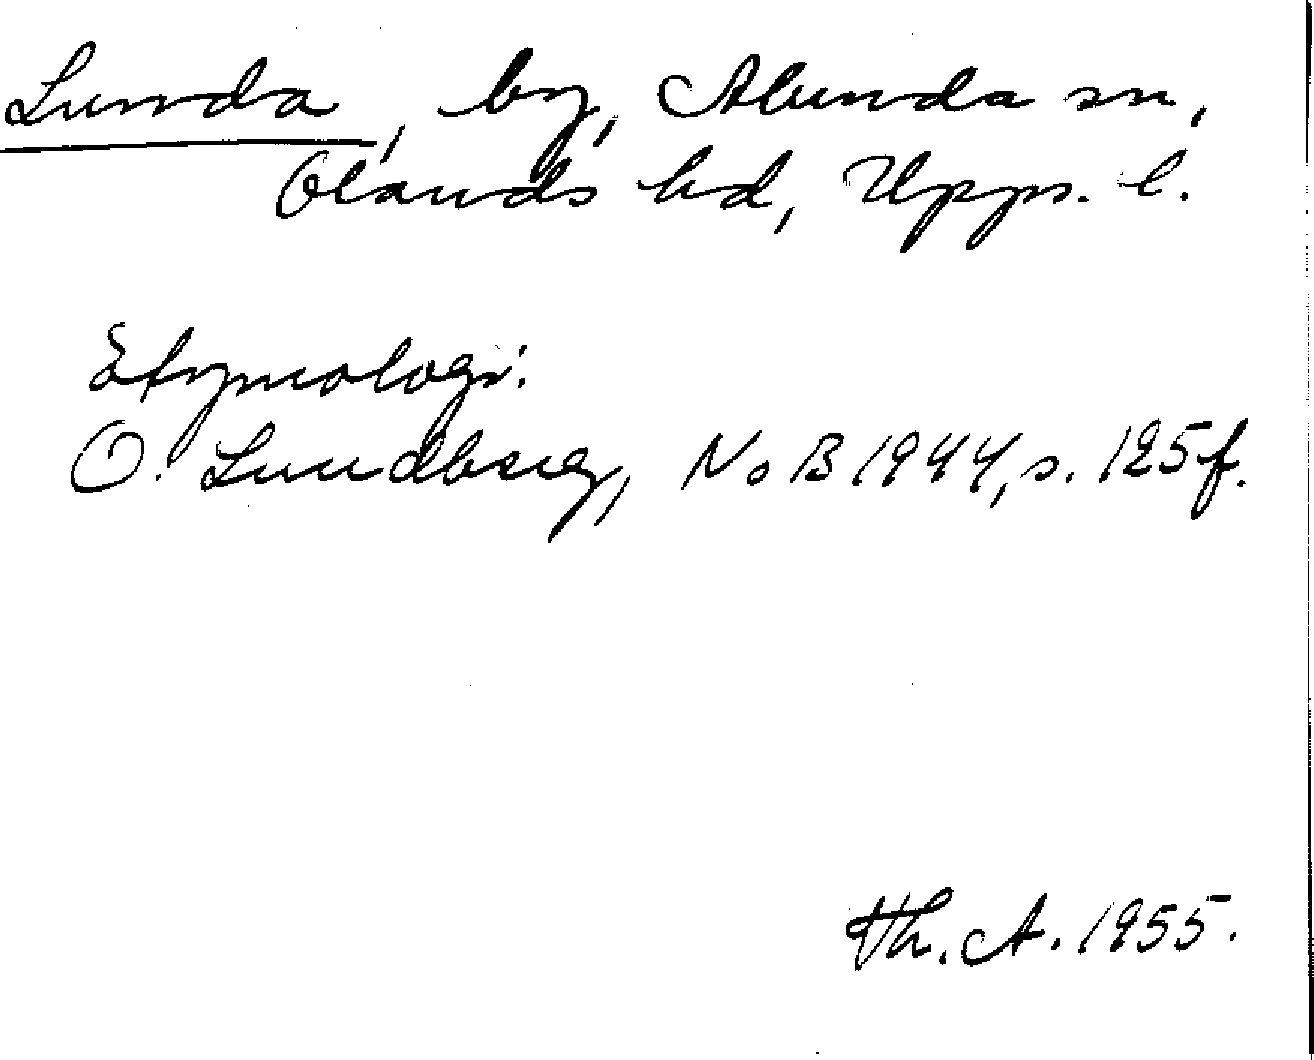 Lunda, by, Alunda sn,
Olands hd, Upps. l.
Etymologi:
O. Lundberg, NoB 1944, s. 125f.
Th. A. 1955.